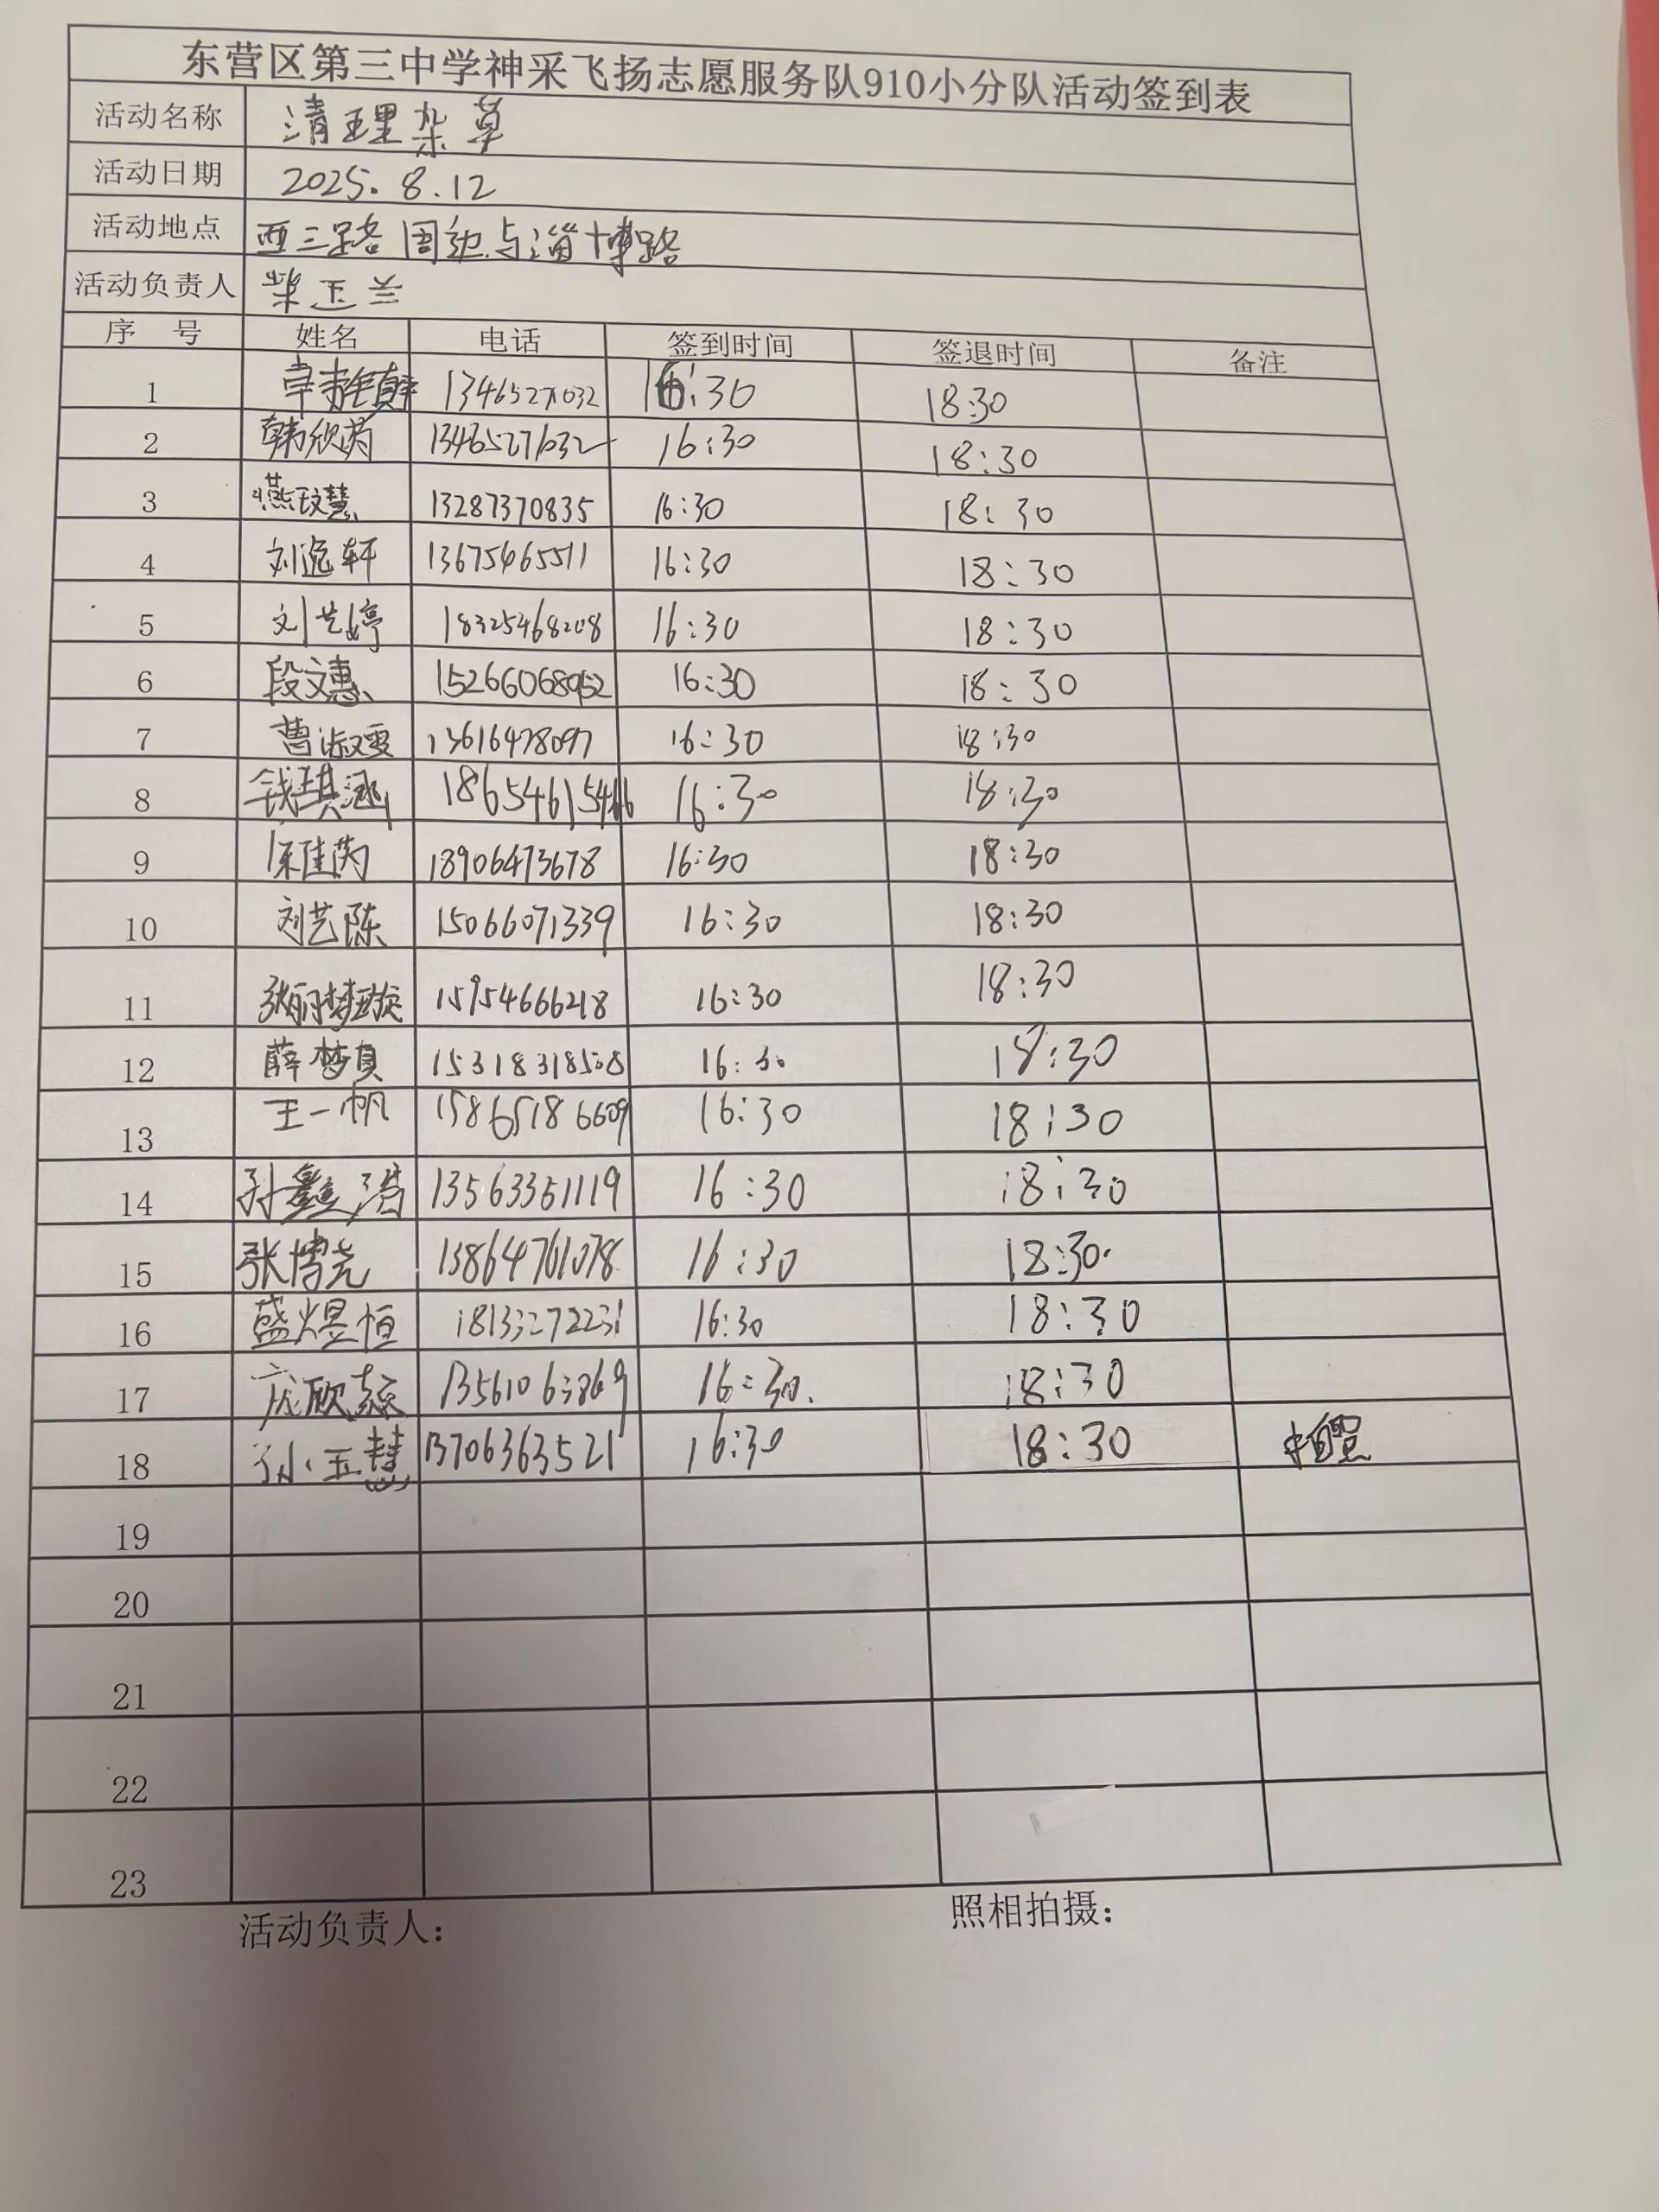 东营区第三中学神采飞扬志愿服务队910小分队活动签到表
活动名称 清理杂草
活动日期 2025.8.12
活动地点 西三路周边与淄博路
活动负责人 柴玉兰
序 号 姓名 电话 签到时间 签退时间 备注
1 13465271032 16:30 18:30
2 韩欣芮 13465271032 16:30 18:30
3 燕玟慧 13287370835 16:30 18:30
4 刘逸轩 13675465511 16:30 18:30
5 刘艺婷 18325468208 16:30 18:30
6 段文惠 15266068952 16:30 18:30
7 曹淑雯 13616478097 16:30 18:30
8 钱琪涵 16:30 18:30
9 18906473678 16:30 18:30
10 刘艺陈 15066071339 16:30 18:30
11 15954666218 16:30 18:30
12 薛梦真 15318318508 16:30 18:30
13 王一帆 15865186609 16:30 18:30
14 孙鑫浩 13563351119 16:30 18:30
15 张博尧 13864761078 16:30 18:30
16 盛煜恒 18133272231 16:30 18:30
17 庞欣蕊 13561063869 16:30. 18:30
18 孙玉慧 13706363521 16:30 18:30
19
20
21
22
23
活动负责人： 照相拍摄：